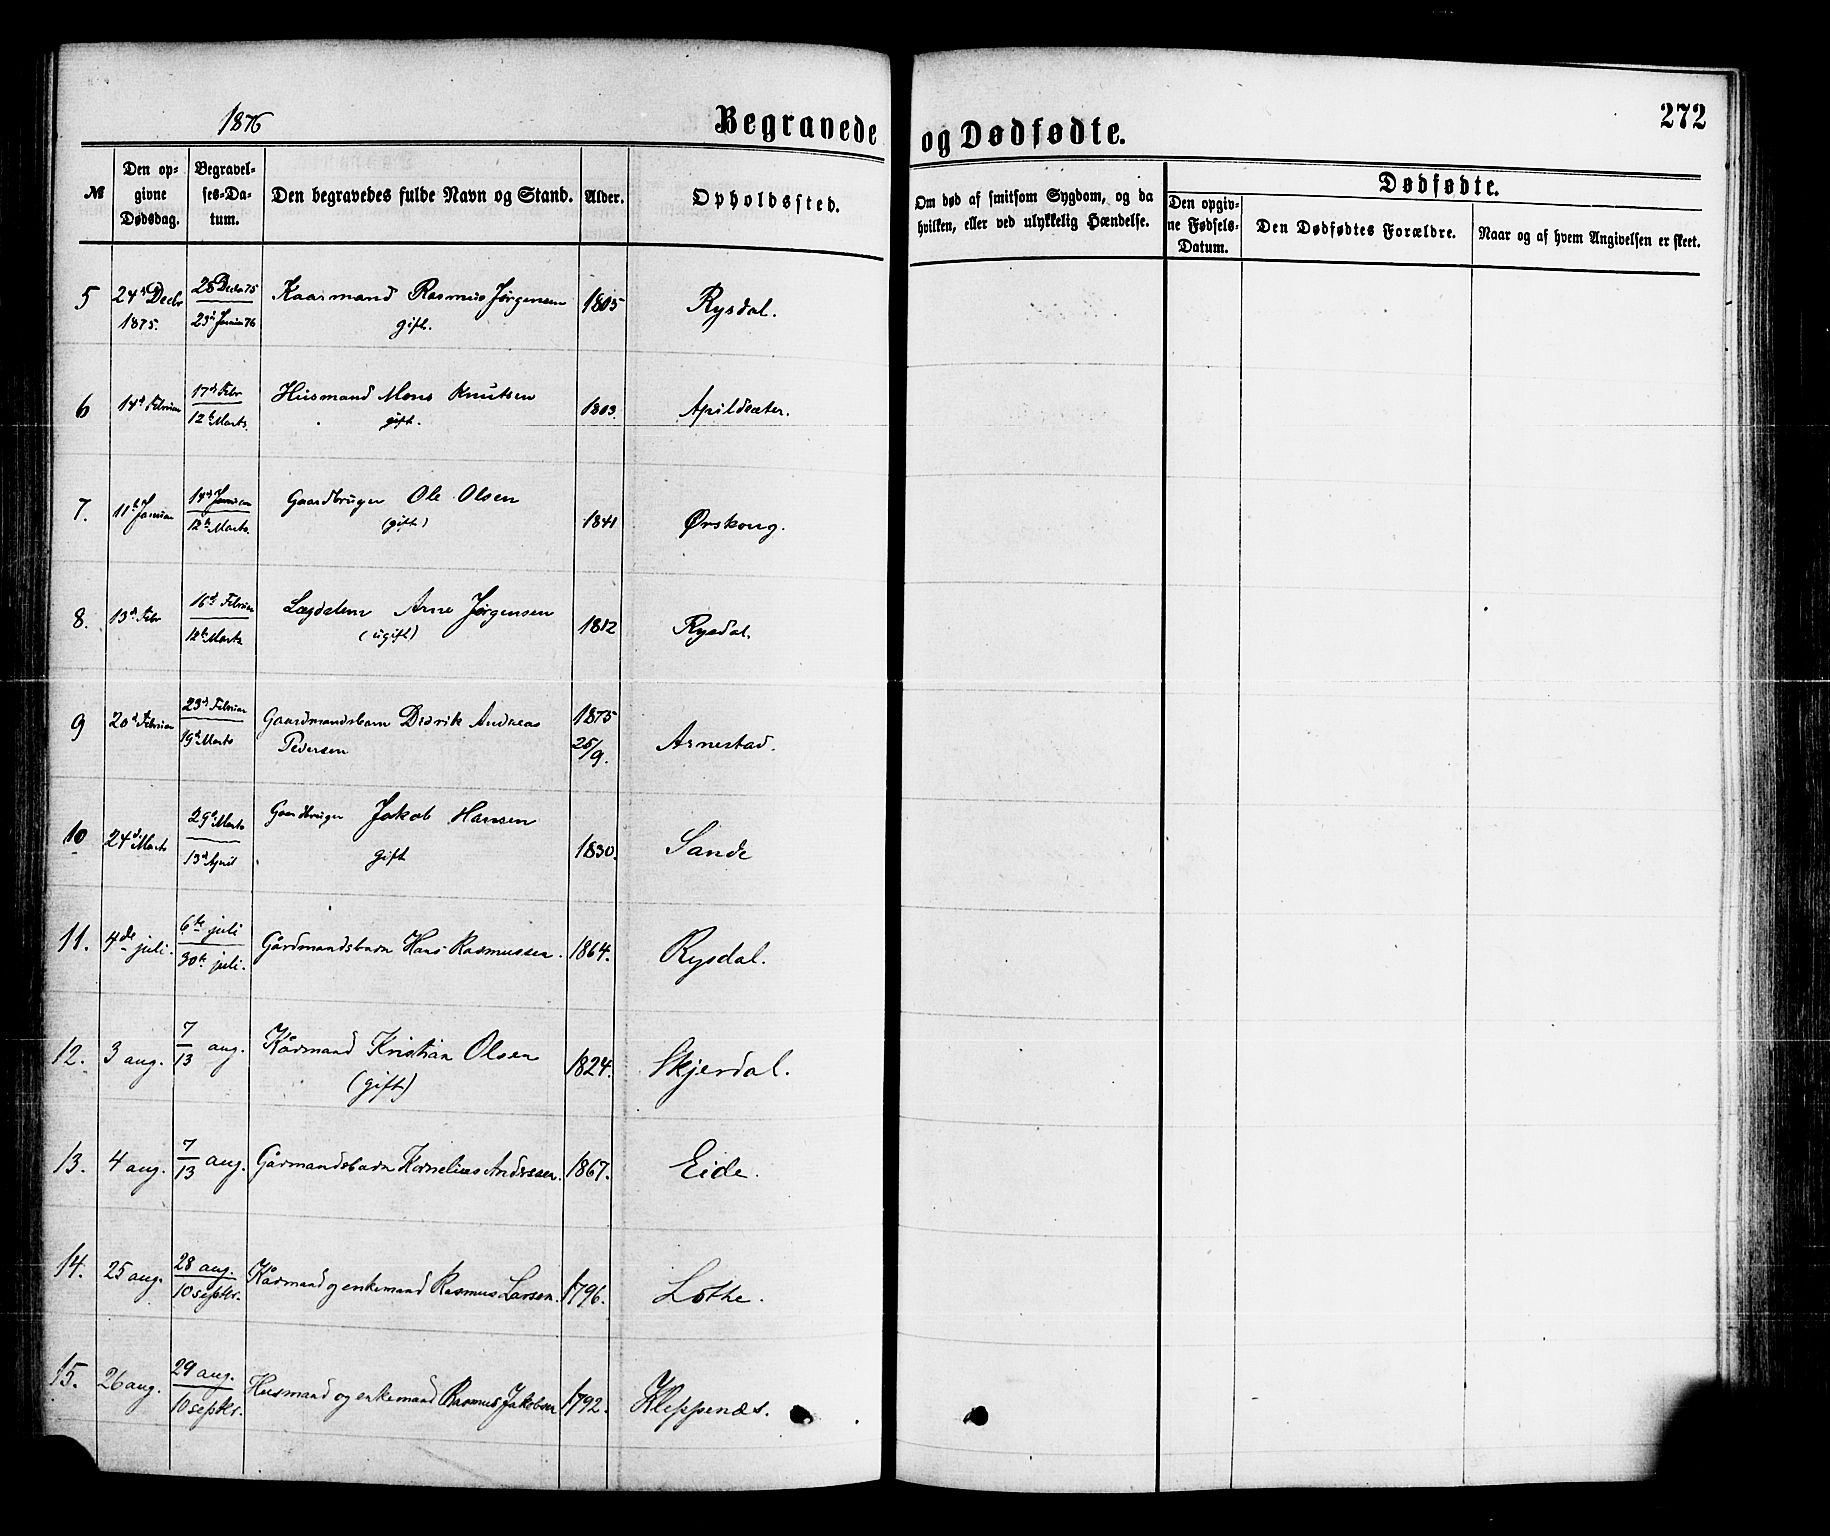 1876 Begravede og Dødfødte. 272
№ Den opgivne Dødsdag. Begravelses-Datum. Den begravedes fulde Navn og Stand. Alder. Opholdssted. Om død af smitsom Sygdom, og da hvilken, eller ved ulykkelig Hændelse. Dødfødte. Den opgivne Fødsels-Datum. Den Dødfødtes Forældre. Naar og af hvem Angivelsen er skeet.
5 24d Decbr 1875. 28 Decbr 75 23d Januar 76 Kaarmand Rasmus Jørgensen gift. 1805 Rysdal.
6 14d Februar 17d Febr 12te Marts. Husmand Mons Knutsen gift. 1803 Apildsæter.
7. 11te Januar 14d Januar 12te Marts. Gaardbruger Ole Olsen (gift) 1841 Ørskoug.
8. 13d Febr 16d Februar 12te Marts Lægdslem Arne Jørgensen (ugift) 1812 Rysdal.
9 20d Februar 23d Februar 19d Marts Gaardmandsbarn Didrik Andreas Pedersen 1875 25/9. Arnestad.
10 24d Marts 29d Marts 13d April Gaardbruger Jakob Hansen gift 1830. Sande
11. 4de juli. 6te juli 30te juli. Gårdmandsbarn Hans Rasmussen. 1864. Rysdal.
12. 3 aug. 7/13 aug. Kårmand Kristian Olsen (gift) 1824. Skjerdal.
13. 4 aug. 7/13 aug. Gårmandsbarn Kornelius Anderssen. 1867. Eide.
14. 25 aug. 28 aug. 10 septbr. Kårmand og enkemand Rasmus Larsen. 1796. Lothe.
15. 26 aug. 29 aug. 10 septbr. Husmand og enkemand Rasmus Jakobsen 1792. Kleppenæs.